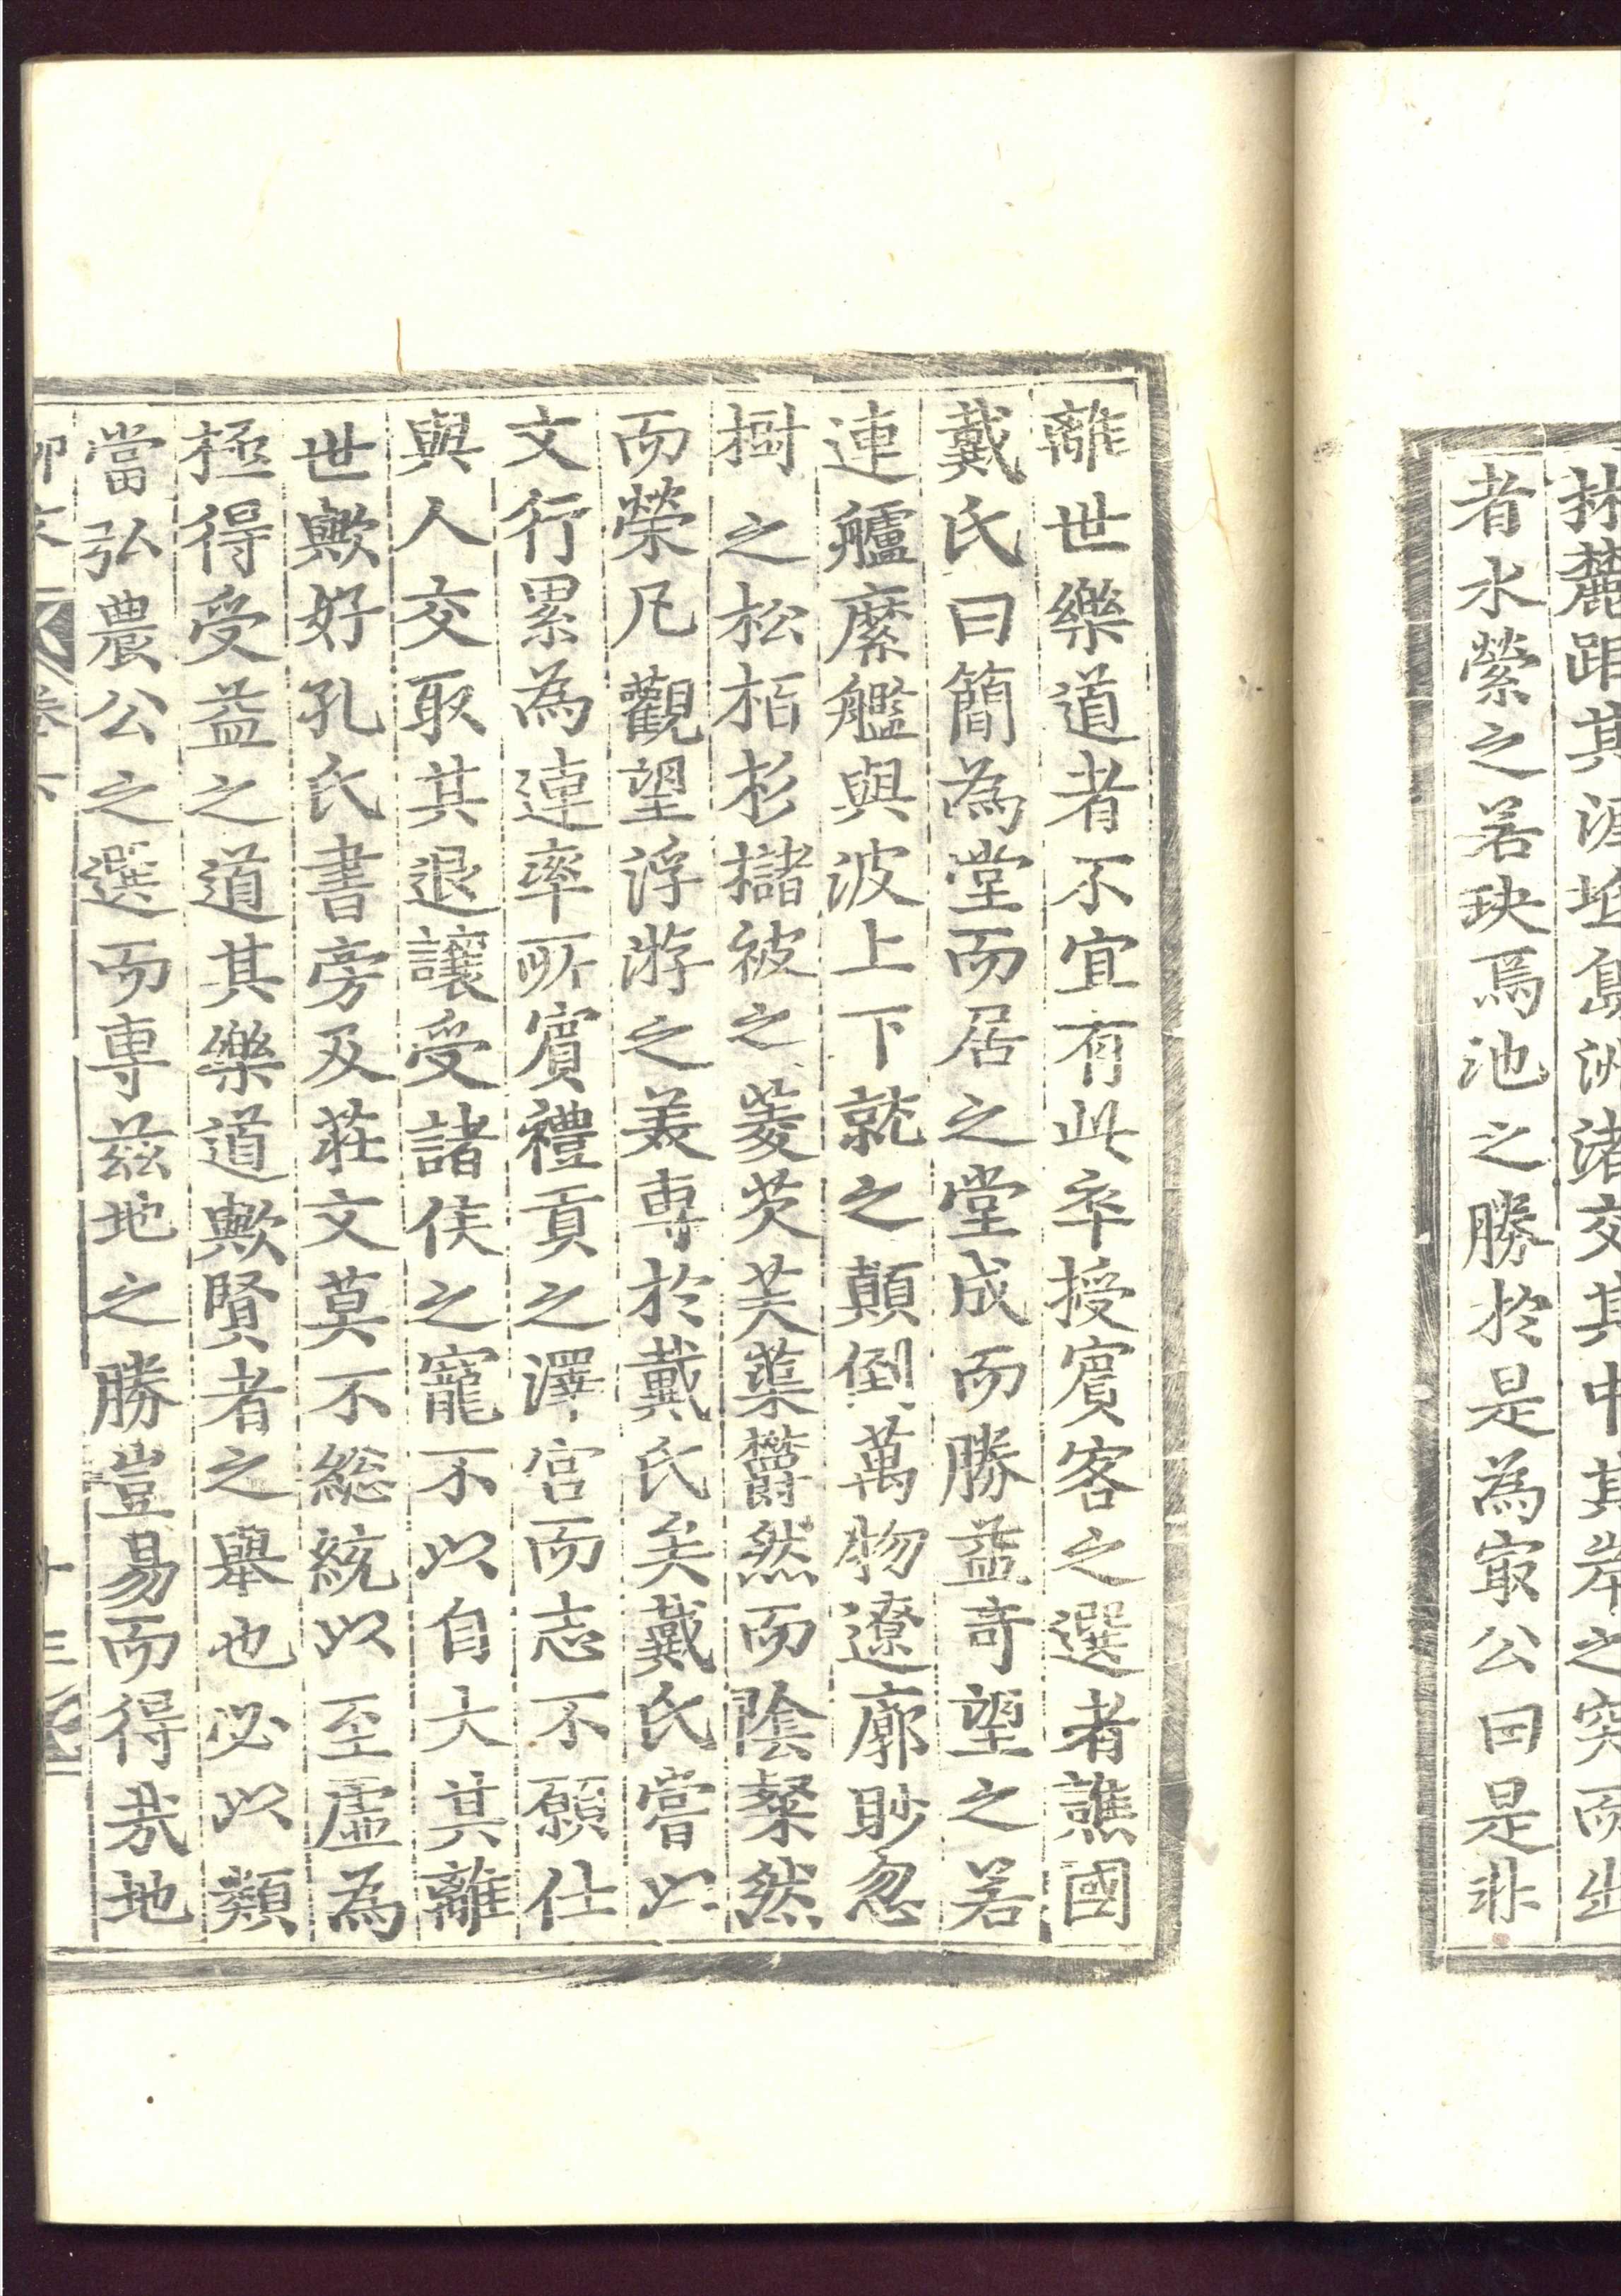 林麓距其涯坻島洲渚交其中其岸之突而出
者水縈之若玦焉池之勝於是為㝡公曰是非
離世樂道者不宜有此卒授賓客之選者譙國
戴氏曰簡為堂而居之堂成而勝益奇望之若
連艫縻艦與波上下就之顛倒萬物遼廓眇忽
樹之松栢杉櫧被之菱芡芙蕖欝然而陰粲然
而榮凡觀望浮游之美専於戴氏矣戴氏嘗以
文行累為連率所賓禮貢之澤宮而志不願仕
與人交取其退讓受諸侯之寵不以自大其離
世歟好孔氏書旁及莊文莫不総統以至虛為
極得受益之道其樂道歟賢者之舉也必以類
當弘農公之選而専茲地之勝豈易而得哉地
卷六
十三